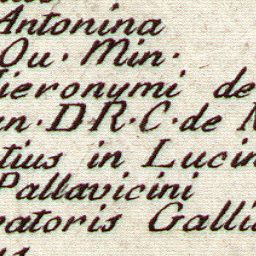 Antonina
Ou. Min.
ieronymi de
un. D R. C. de
tius in Lucin
Pallavicini
atoris Galli